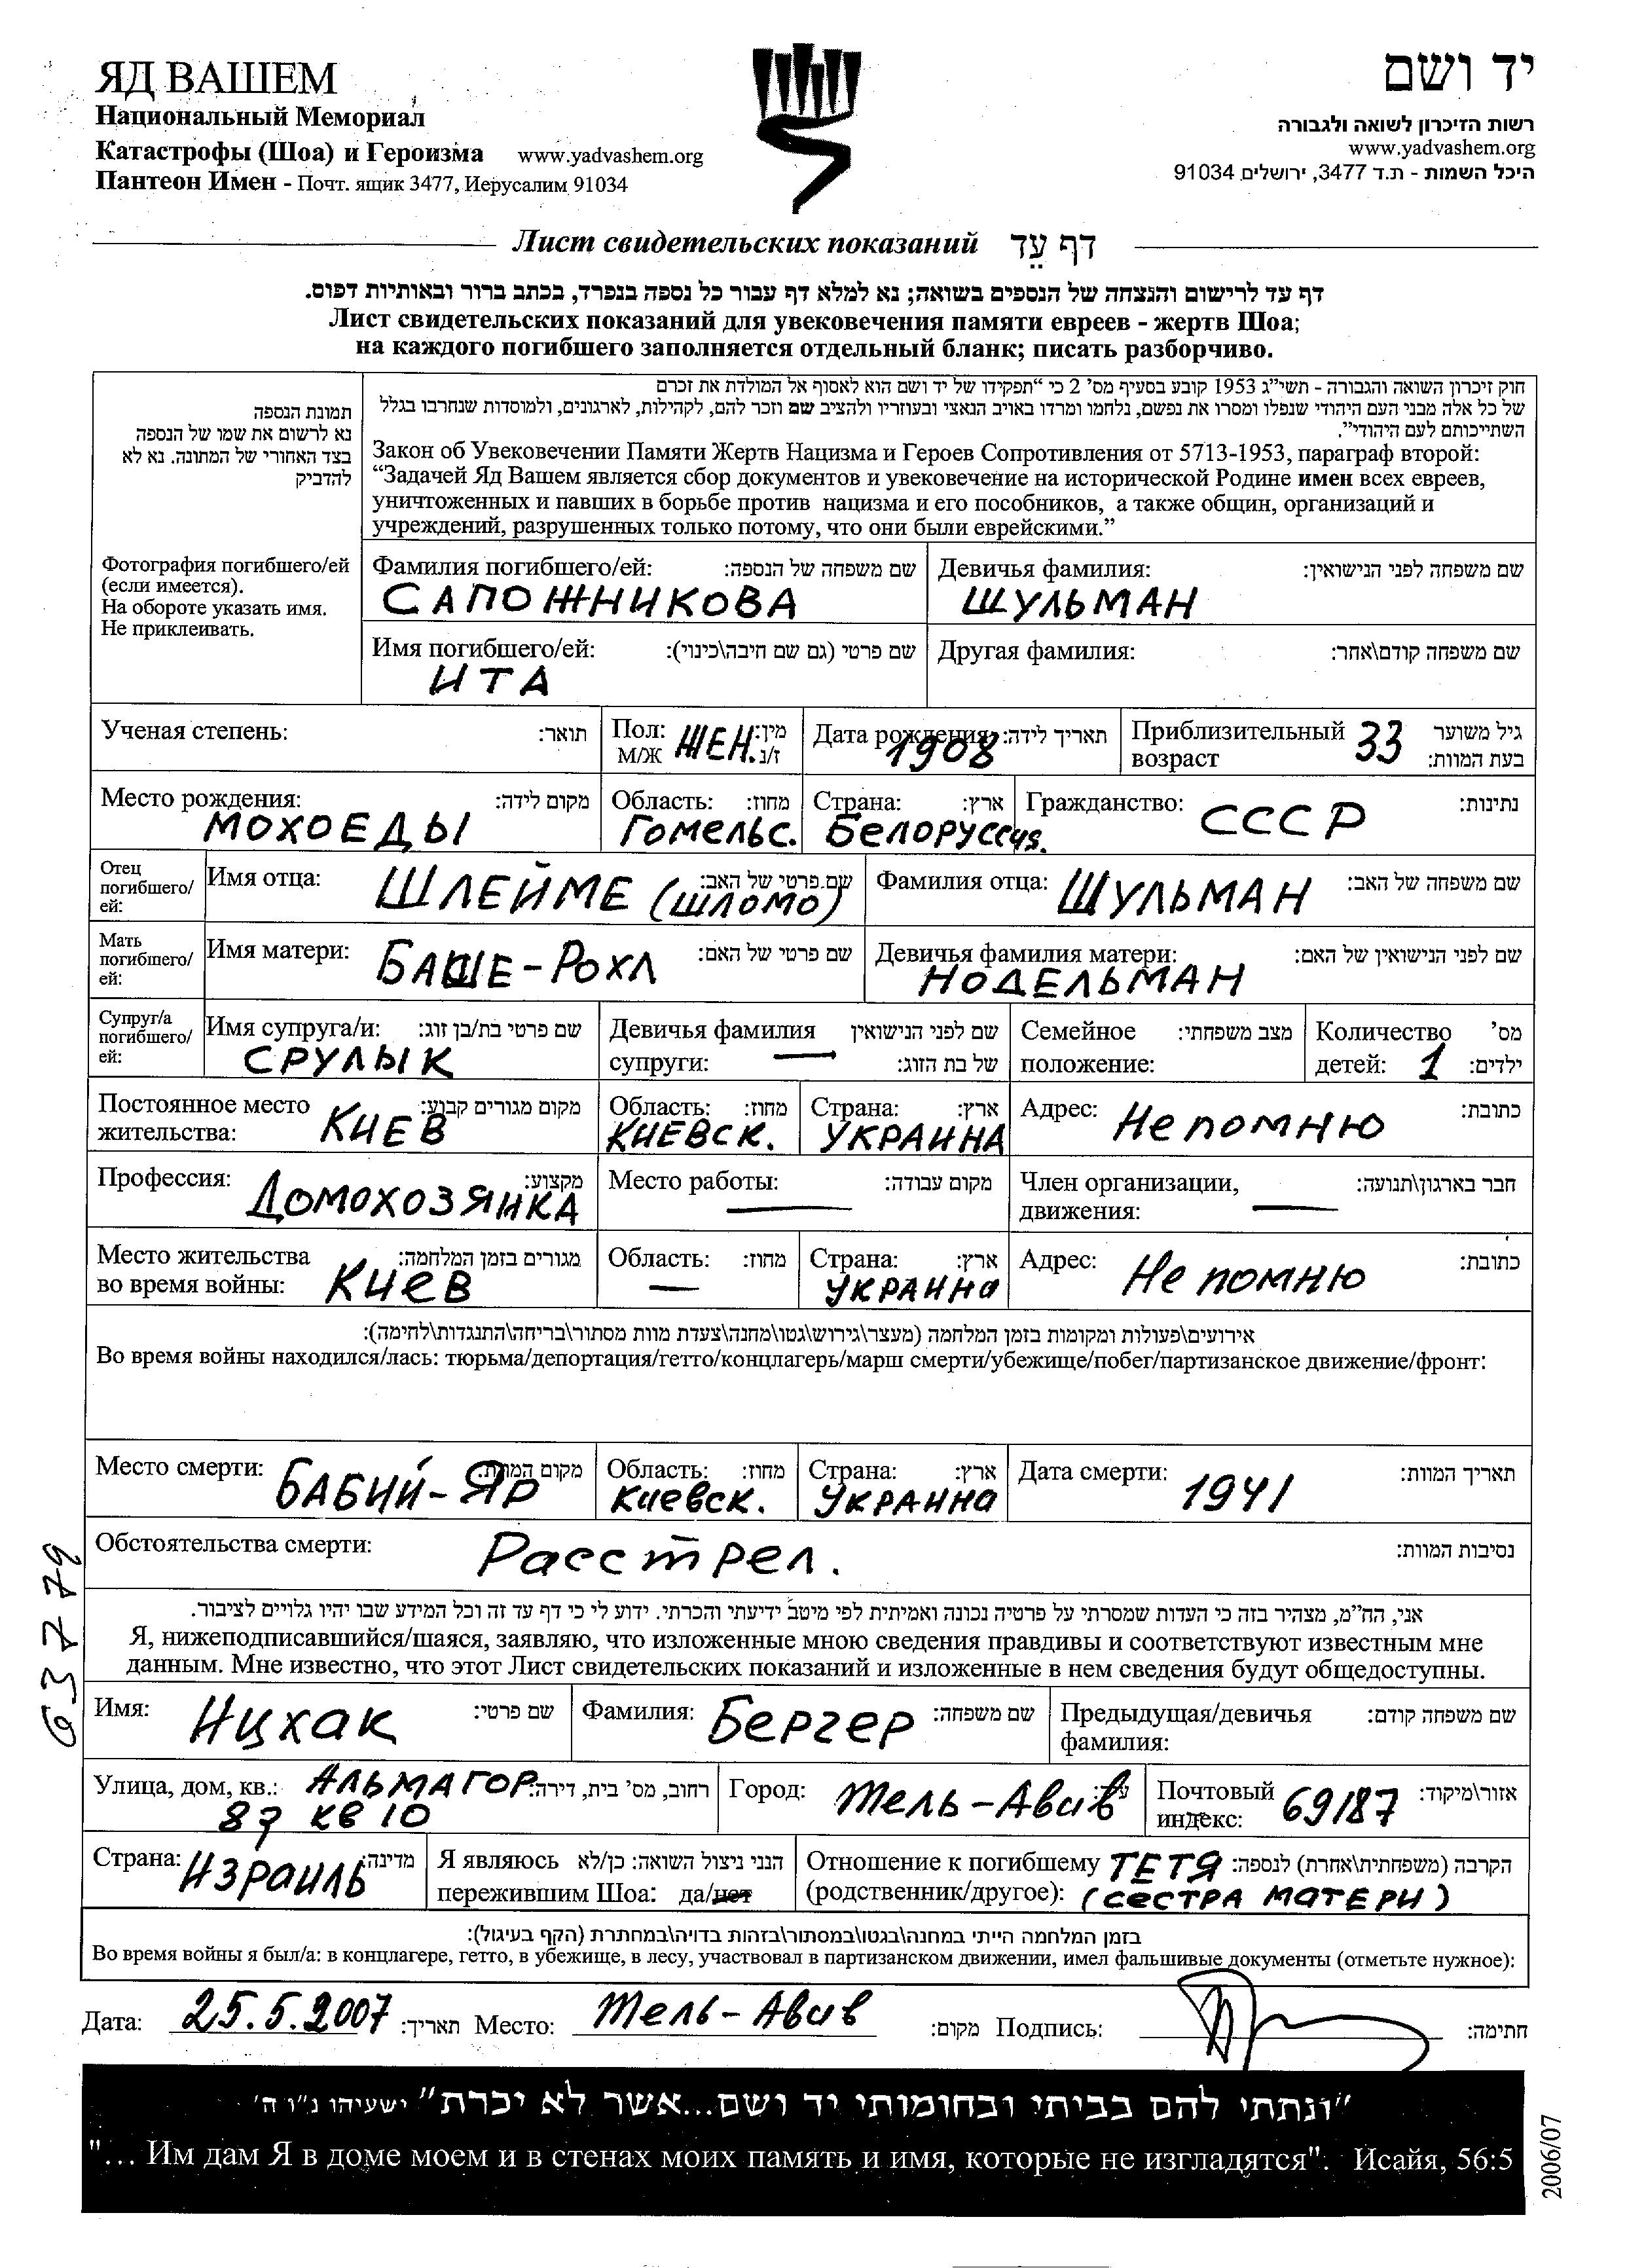 ЯД ВАШЕМ
Национальный Мемориал
Катастрофы (Шоа) и Героизма www.yadvashem.org
Пантеон Имен - Почт. ящик 3477, Иерусалим 91034
יד ושם
רשות הזיכרון לשואה ולגבורה
www.yadvashem.org
היכל השמות - ת.ד 3477, ירושלים 91034
Лист свидетельских показаний דף עֵד
דף עד לרישום והנצחה של הנספים בשואה; נא למלא דף עבור כל נספה בנפרד, בכתב ברור ובאותיות דפוס.
Лист свидетельских показаний для увековечения памяти евреев - жертв Шоа;
на каждого погибшего заполняется отдельный бланк; писать разборчиво.
תמונת הנספה
נא לרשום את שמו של הנספה
בצד האחורי של המתונה. נא לא
להדביק
Фотография погибшего/ей
(если имеется).
На обороте указать имя.
Не приклеивать.
חוק זיכרון השואה והגבורה - תשי"ג 1953 קובע בסעיף מס' 2 כי "תפקידו של יד ושם הוא לאסוף אל המולדת את זכרם
של כל אלה מבני העם היהודי שנפלו ומסרו את נפשם, נלחמו ומרדו באויב הנאצי ובעוזריו ולהציב שם וזכר להם, לקהילות, לארגונים, ולמוסדות שנחרבו בגלל
השתייכותם לעם היהודי".
Закон об Увековечении Памяти Жертв Нацизма и Героев Сопротивления от 5713-1953, параграф второй:
“Задачей Яд Вашем является сбор документов и увековечение на исторической Родине имен всех евреев,
уничтоженных и павших в борьбе против нацизма и его пособников, а также общин, организаций и
учреждений, разрушенных только потому, что они были еврейскими.”
Фамилия погибшего/ей: שם משפחה של הנספה:
САПОЖНИКОВА
Девичья фамилия: שם משפחה לפני הנישואין:
ШУЛЬМАН
Имя погибшего/ей: שם פרטי (גם שם חיבה\כינוי):
ИТА
Другая фамилия: שם משפחה קודם\אחר:
Ученая степень: תואר:
Пол: ЖЕН. מין:
М/Ж ז/נ
Дата рождения: תאריך לידה:
1908
Приблизительный 33 גיל משוער
возраст בעת המוות:
Место рождения: מקום לידה:
МОХОЕДЫ
Область: מחוז:
Гомельс.
Страна: ארץ:
Белоруссия.
Гражданство: СССР נתינות:
Отец
погибшего/
ей:
Имя отца: ШЛЕЙМЕ (ШЛОМО) שם פרטי של האב:
Фамилия отца: ШУЛЬМАН שם משפחה של האב:
Мать
погибшего/
ей:
Имя матери: БАШЕ-РОХЛ שם פרטי של האם:
Девичья фамилия матери: שם לפני הנישואין של האם:
НОДЕЛЬМАН
Супруг/а
погибшего/
ей:
Имя супруга/и: שם פרטי בת/בן זוג:
СРУЛЫК
Девичья фамилия — שם לפני הנישואין
супруги: של בת הזוג:
Семейное מצב משפחתי:
положение:
Количество מס'
детей: 1 ילדים:
Постоянное место מקום מגורים קבוע:
жительства: КИЕВ
Область: מחוז:
КИЕВСК.
Страна: ארץ:
УКРАИНА
Адрес: Не помню כתובת:
Профессия: מקצוע:
ДОМОХОЗЯЙКА
Место работы: מקום עבודה:
—
Член организации, חבר בארגון\תנועה:
движения: —
Место жительства מגורים בזמן המלחמה:
во время войны: Киев
Область: מחוז:
—
Страна: ארץ:
УКРАИНА
Адрес: Не помню כתובת:
אירועים\פעולות ומקומות בזמן המלחמה (מעצר\גירוש\גטו\מחנה\צעדת מוות מסתור\בריחה\התנגדות\לחימה):
Во время войны находился/лась: тюрьма/депортация/гетто/концлагерь/марш смерти/убежище/побег/партизанское движение/фронт:
Место смерти: БАБИЙ-ЯР מקום המוות:
Область: מחוז:
Киевск.
Страна: ארץ:
УКРАИНА
Дата смерти: 1941 תאריך המוות:
Обстоятельства смерти: Расстрел. נסיבות המוות:
63779
אני, הח"מ, מצהיר בזה כי העדות שמסרתי על פרטיה נכונה ואמיתית לפי מיטב ידיעתי והכרתי. ידוע לי כי דף עד זה וכל המידע שבו יהיו גלויים לציבור.
Я, нижеподписавшийся/шаяся, заявляю, что изложенные мною сведения правдивы и соответствуют известным мне
данным. Мне известно, что этот Лист свидетельских показаний и изложенные в нем сведения будут общедоступны.
Имя: Ицхак שם פרטי:
Фамилия: Бергер שם משפחה:
Предыдущая/девичья שם משפחה קודם:
фамилия:
Улица, дом, кв.: АЛЬМАГОР רחוב, מס' בית, דירה:
87 кв 10
Город: Тель-Авив
Почтовый 69187 אזור\מיקוד:
индекс:
Страна: ИЗРАИЛЬ מדינה:
Я являюсь הנני ניצול השואה: כן/לא
пережившим Шоа: да/нет
Отношение к погибшему ТЕТЯ הקרבה (משפחתית\אחרת) לנספה:
(родственник/другое): (СЕСТРА МАТЕРИ)
בזמן המלחמה הייתי במחנה\בגטו\במסתור\בזהות בדויה\במחתרת (הקף בעיגול):
Во время войны я был/а: в концлагере, гетто, в убежище, в лесу, участвовал в партизанском движении, имел фальшивые документы (отметьте нужное):
Дата: 25.5.2007 תאריך: Место: Тель-Авив מקום: Подпись: חתימה:
"ונתתי להם בביתי ובחומותי יד ושם...אשר לא יכרת" ישעיהו נ"ו ה'
"... Им дам Я в доме моем и в стенах моих память и имя, которые не изгладятся". Исайя, 56:5
2006/07